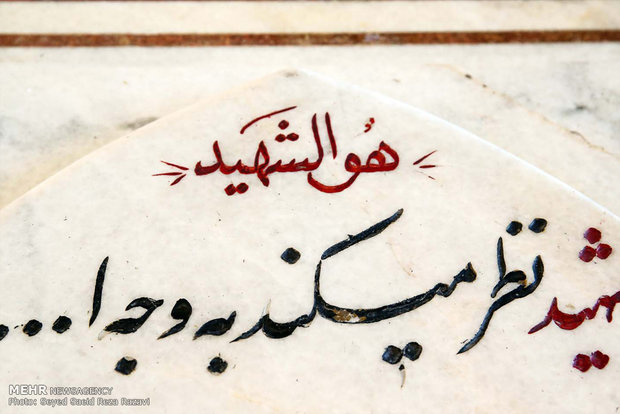 هُو الشهید
شهید نظر میکند به وجه ا...
MEHR NEWSAGENCY
Photo: Seyed Saeid Reza Razavi